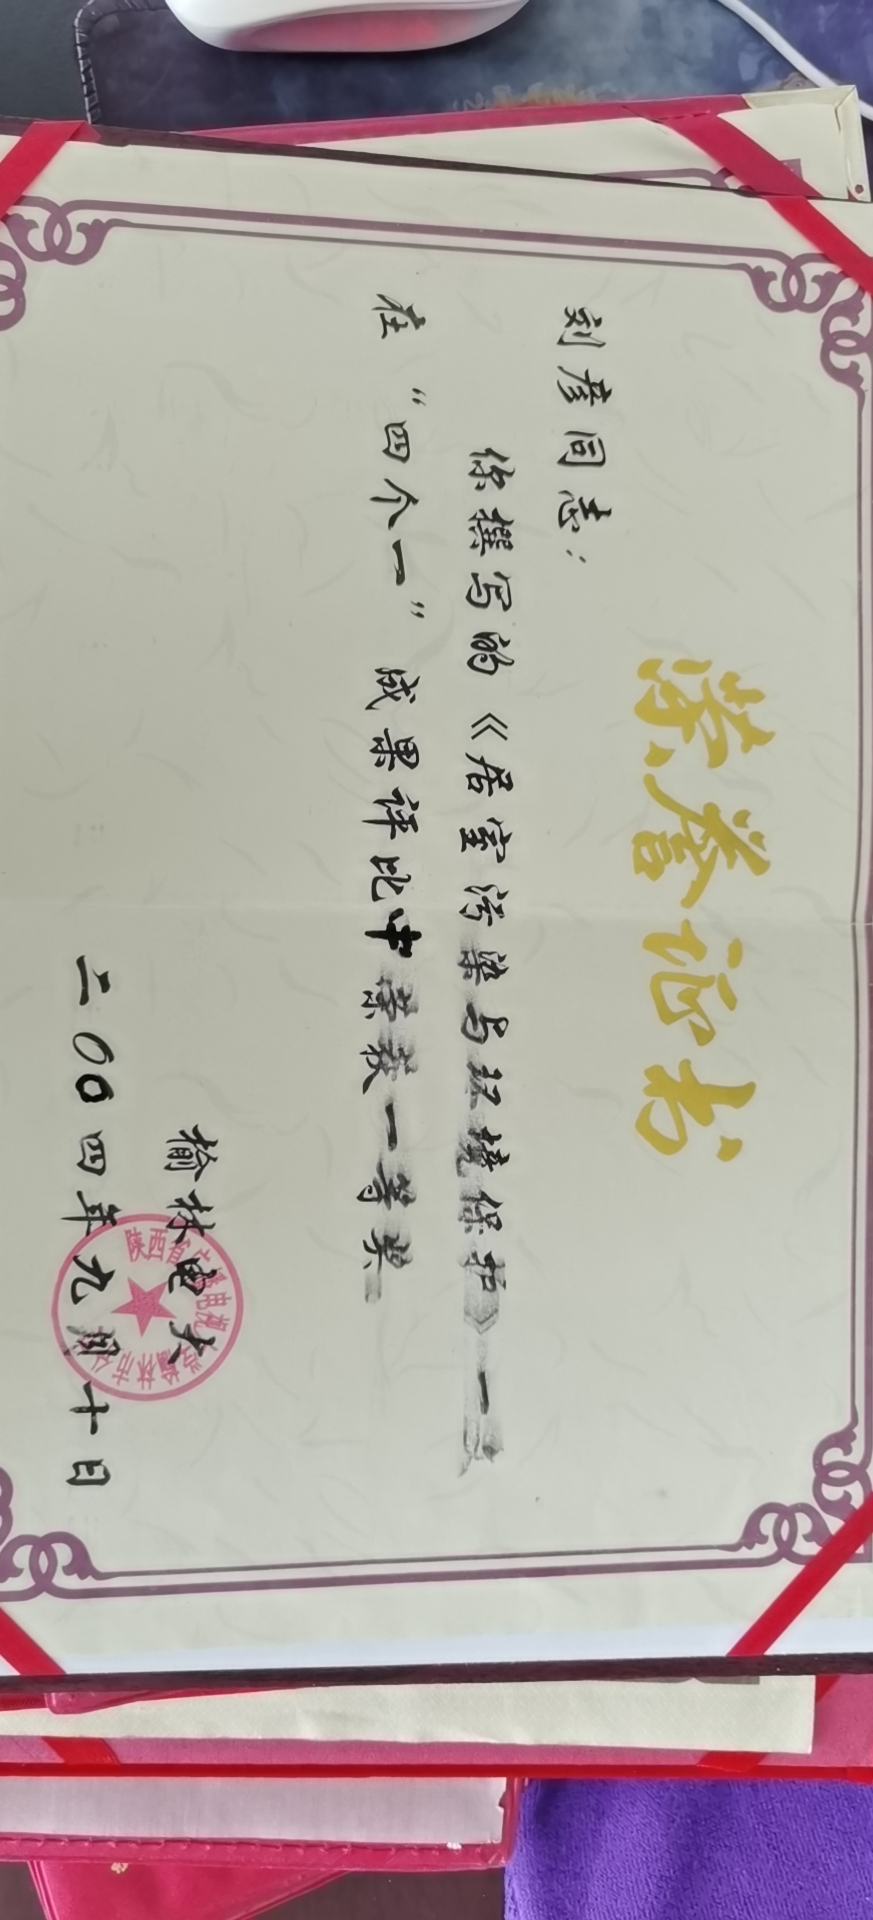 荣誉证书
刘彦同志：
你撰写的《居室污染与环境保护》一文
在“四个一”成果评比中荣获一等奖
榆林电大
二00四年九月十日
陕西省广播电视大学榆林市分